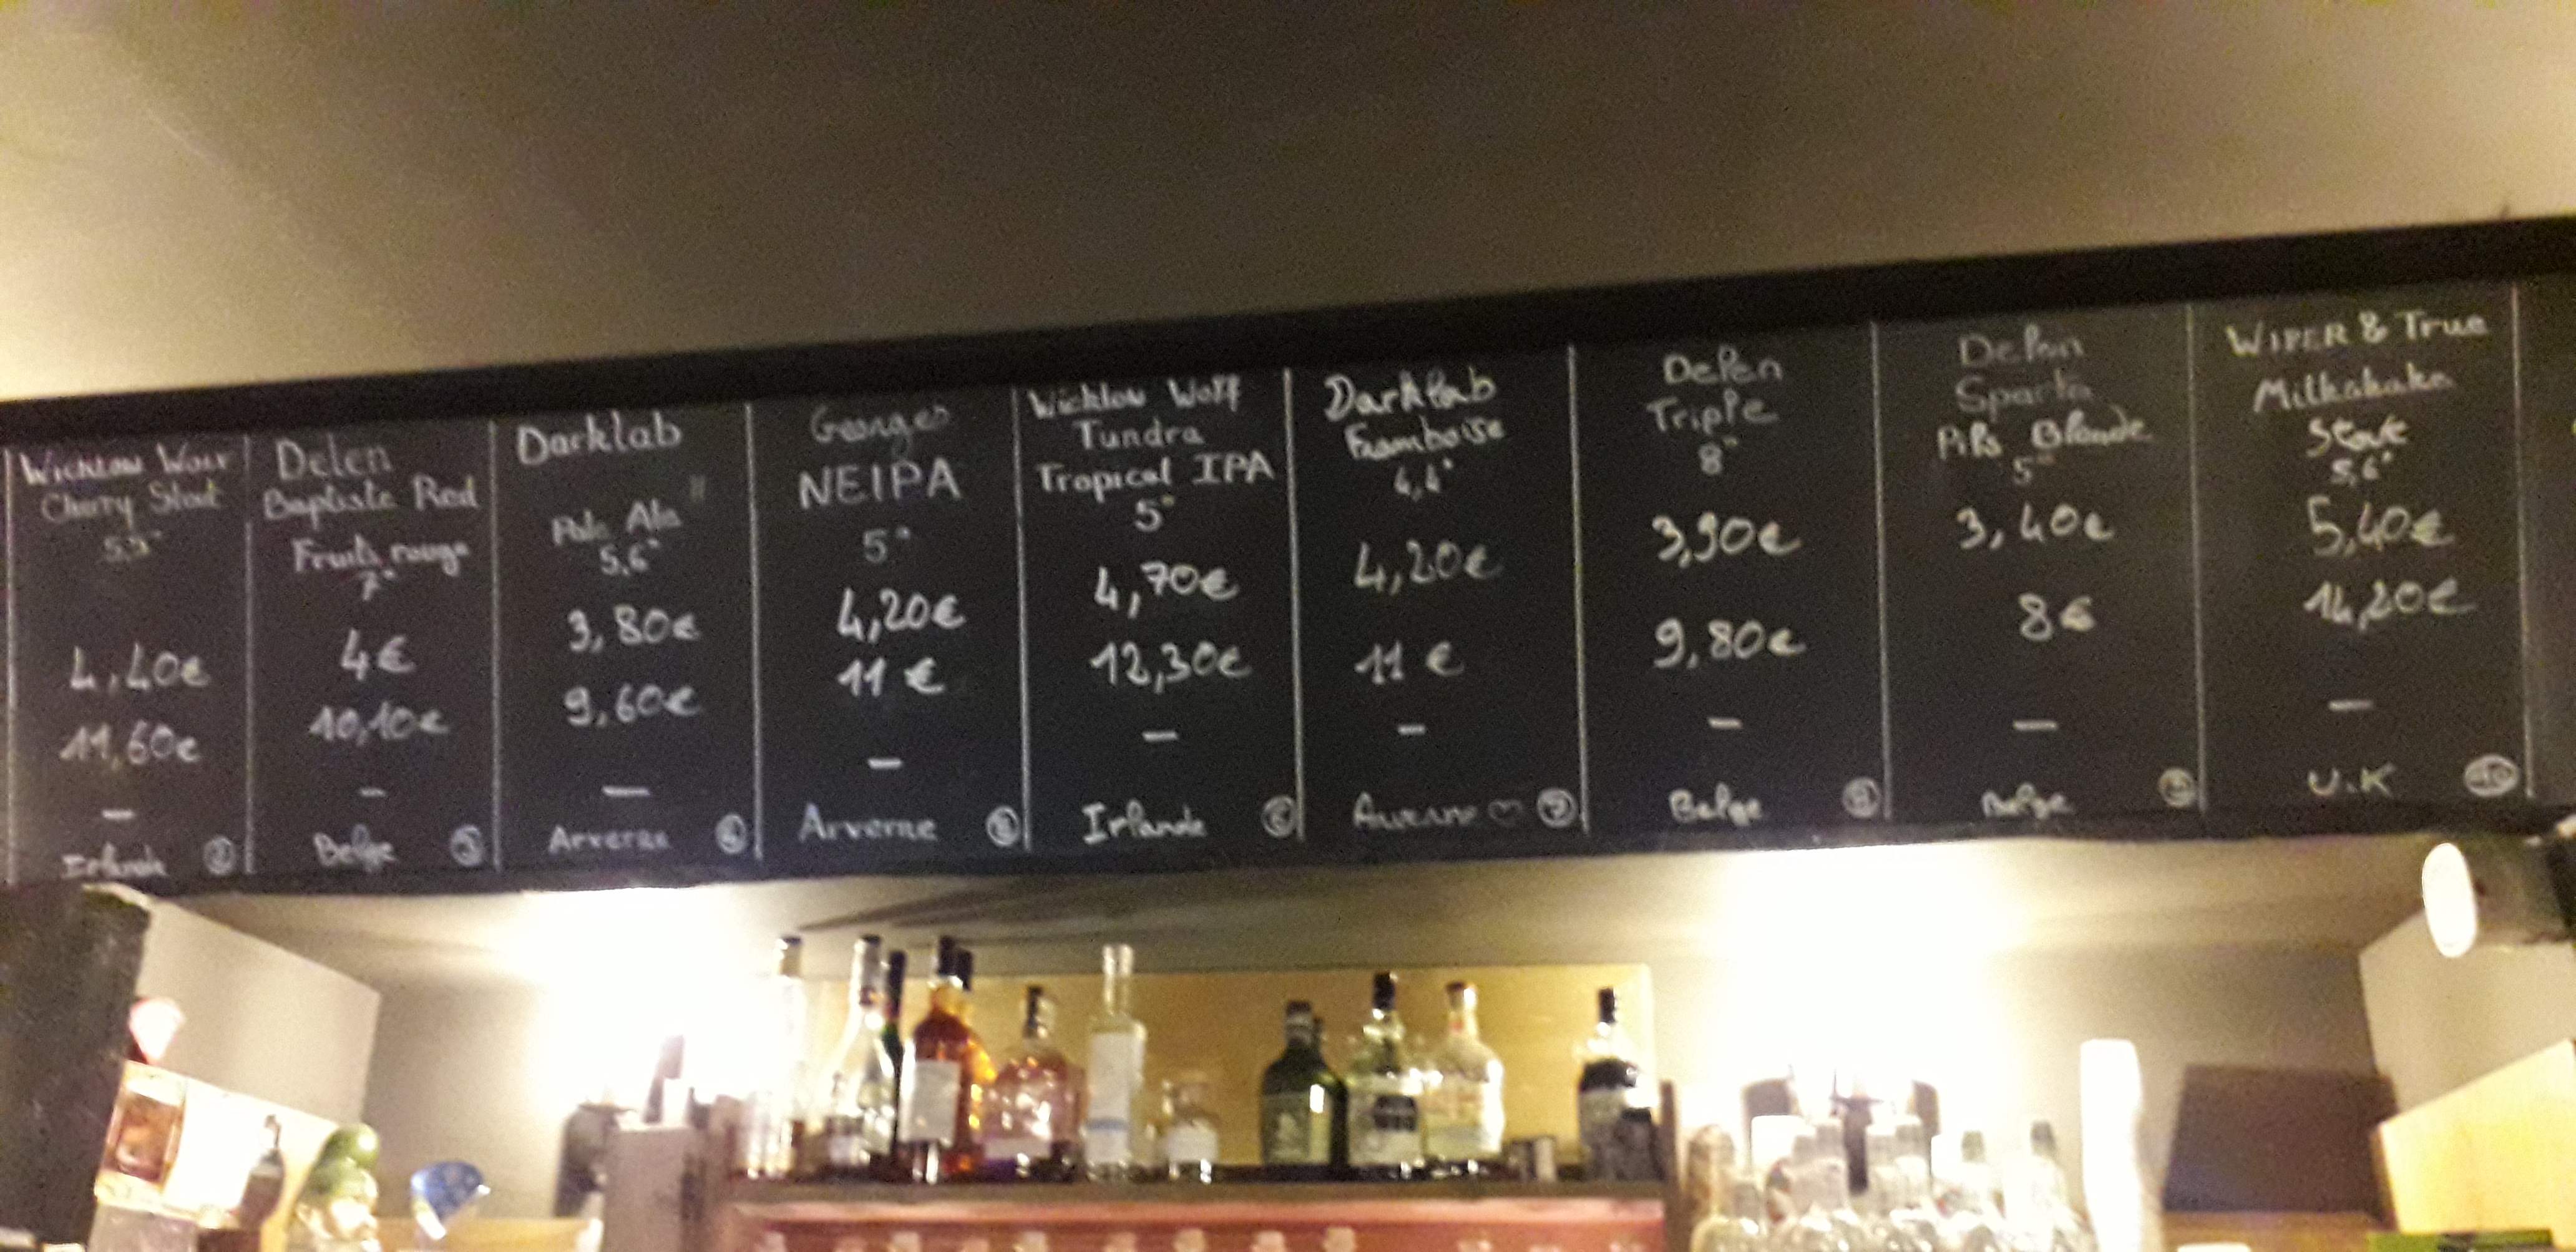 Wicklow Wolf
Cherry Stout
5,5°
4,40€
11,60€
–
Irlande
②
Delen
Baptiste Red
Fruits rouge
7°
4€
10,10€
–
Belge
③
Darklab
Pale Ale
5,6°
3,80€
9,60€
–
Arverne
④
Georges
NEIPA
5°
4,20€
11 €
–
Arverne
⑤
Wicklow Wolf
Tundra
Tropical IPA
5°
4,70€
12,30€
–
Irlande
⑥
Darklab
Framboise
4,4°
4,20€
11 €
–
♡ ⑦
Delen
Triple
8°
3,90€
9,80€
–
Belge
⑧
Delen
Sparta
Pils Blonde
5°
3,40€
8€
–
Belge
⑨
WIPER & True
Milkshake
Stout
5,6°
5,40€
14,20€
–
U.K
⑩